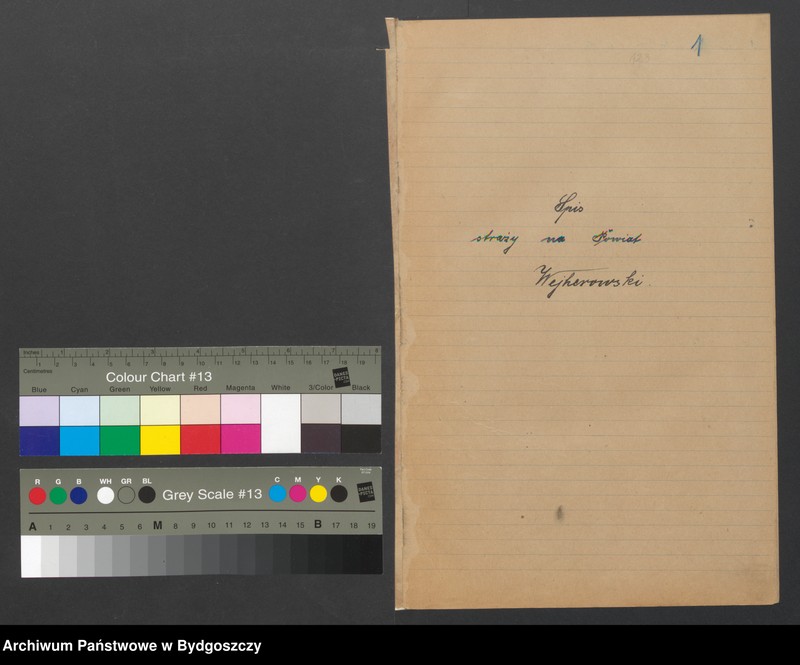 1
Spis
straży na Powiat
Wejherowski.
Inches 1 2 3 4 5 6 7 8
Centimetres 1 2 3 4 5 6 7 8 9 10 11 12 13 14 15 16 17 18 19
Colour Chart #13
Blue Cyan Green Yellow Red Magenta White 3/Color Black
R G B WH GR BL Grey Scale #13 C M Y K
A 1 2 3 4 5 6 M 8 9 10 11 12 13 14 15 B 17 18 19
Archiwum Państwowe w Bydgoszczy